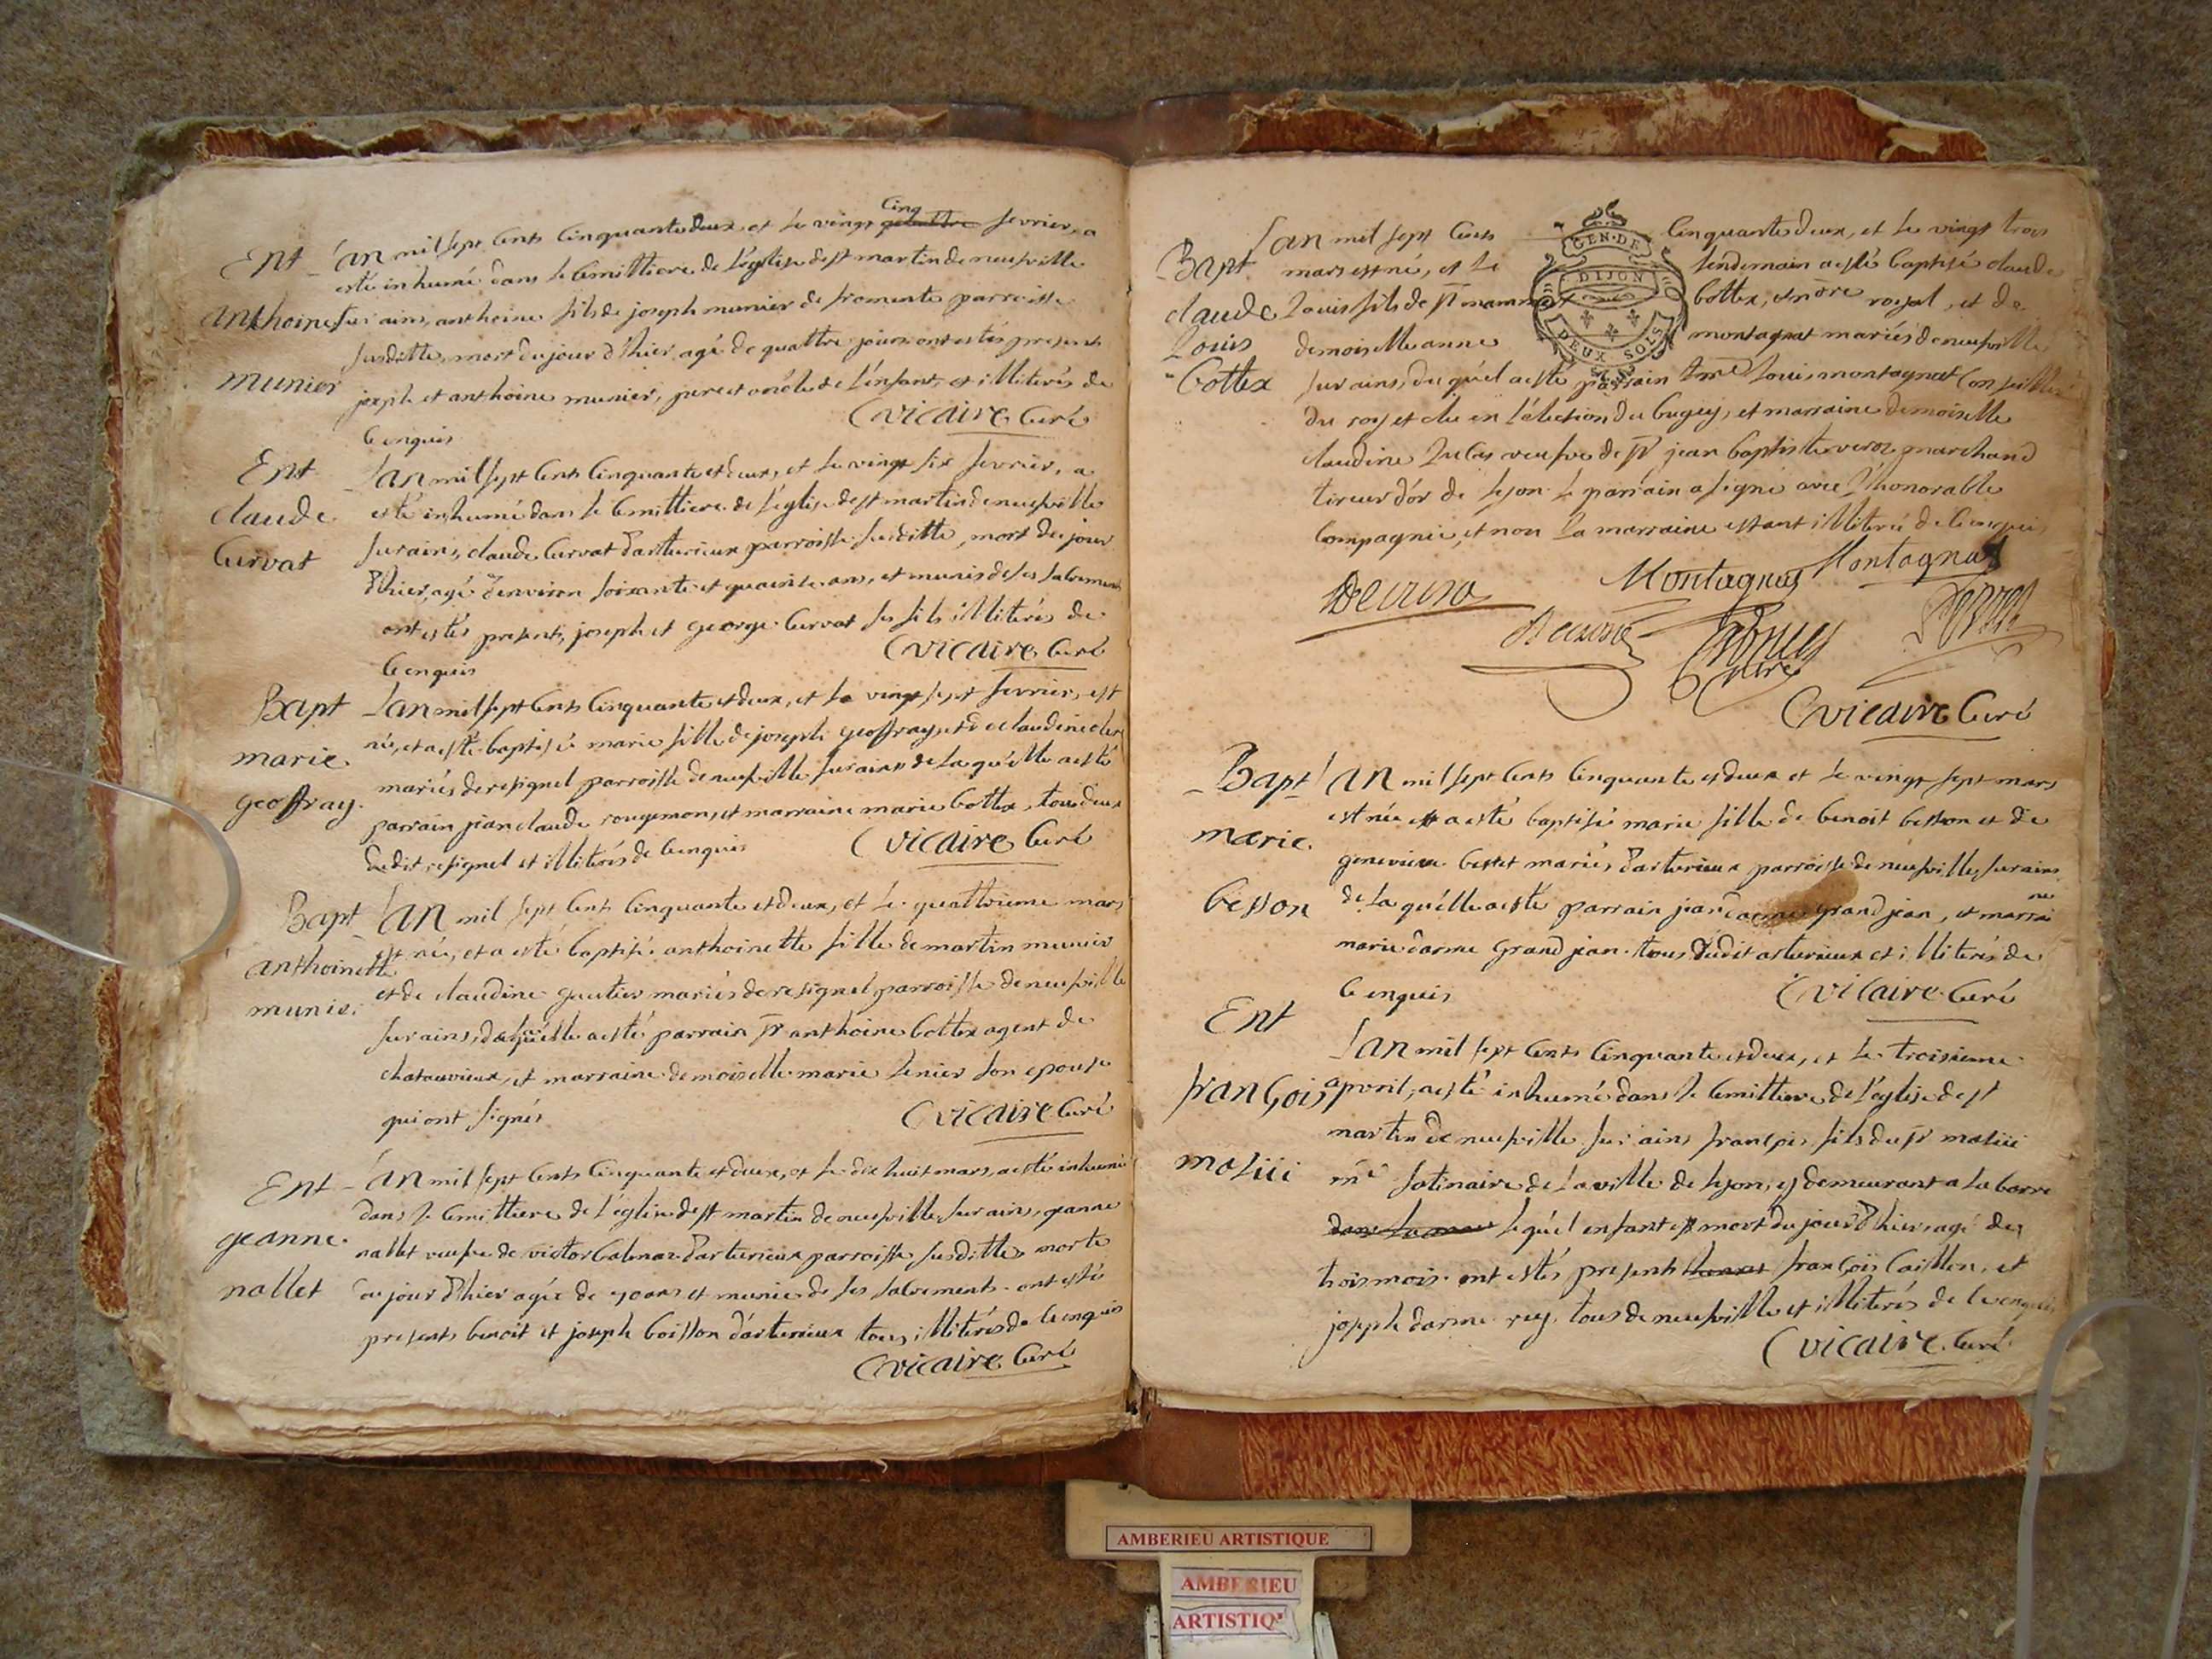 Ent
anthoine
munier
L'an mil sept cents cinquante deux et le vingt cinq quattre fevrier, a
esté inhumé dans le cimittiere de l'église de st martin de neufville
sur ains, anthoine fils de joseph munier de fromente parroisse
susditte, mort du jour d'hier, agé de quattre jours ont estés presents
joseph et anthoine munier, pere et oncle de l'enfant, et illiterés de
ce enquis
C vicaire Curé
Ent
claude
Curvat
L'an mil sept cents cinquante et deux, et le vingt six fevrier, a
esté inhumé dans le cimittiere de l'église de st martin de neufville
sur ains, claude Curvat d'arturieux parroisse susditte, mort du jour
d'hier, agé d'environ soixante et quainze ans, et munis de ses sacrements
ont estés presents, joseph et george Curvat ses fils illiterés de
ce enquis
C vicaire Curé
Bapt
marie
geoffray
L'an mil sept cents cinquante et deux, et le vingt sept fevrier, est
née, et a esté baptisée marie fille de joseph geoffray, et de claudine
mariés de resignel parroisse de neufville sur ains de la qu'elle a esté
parrain jean claude rougemont, et marraine marie bottex, tous deux
dudit resignel et illiterés de ce enquis
C vicaire Curé
Bapt
anthoinette
munier
L'an mil sept cents cinquante et deux, et le quattrieme mars
est née, et a esté baptisée anthoinette fille de martin munier
et de claudine gautier mariés de resignel parroisse de neufville
sur ains, de la qu'elle a esté parrain sr anthoine bottex agent de
chatauvieux, et marraine demoiselle marie tenier son epouse
qui ont signés
C vicaire Curé
Ent
jeanne
nallet
L'an mil sept cents cinquante et deux, et le dix huit mars, a esté inhumée
dans le cimittiere de l'église de st martin de neufville sur ains, jeanne
nallet veufve de victor d'arturieux parroisse susditte, morte
du jour d'hier agée de 70 ans et munie de ses sacrements. ont estés
presents benoit et joseph boisson d'arturieux tous illiterés de ce enquis
C vicaire Curé
Bapt
claude
Louis
bottex
GEN. DE
DIJON
DEUX SOLS
L'an mil sept cents cinquante deux, et le vingt trois
mars est né, et le lendemain a esté baptisé claude
Louis fils de sr bottex, royal, et de
demoiselle anne montagnat mariés de neufville
sur ains, du qu'el a esté parrain Louis montagnat Conseiller
du roy et elu en l'élection du bugey, et marraine demoiselle
claudine veufve de sr jean baptiste marchand
tireur d'or de lyon le parrain a signé avec l'honorable
compagnie, et non la marraine estant illiterée de ce enquis
Montagnat Montagnat
C vicaire Curé
Bapt
marie
besson
L'an mil sept cents cinquante et deux et le vingt sept mars
est née et a esté baptisée marie fille de benoit besson et de
genevieve mariés d'arturieux parroisse de neufville sur ains
de la qu'elle a esté parrain jean grand jean, et marraine
marie darme grand jean. tous dudit arturieux et illiterés de
ce enquis
C vicaire Curé
Ent
françois
L'an mil sept cents cinquante et deux, et le troisieme
apvril, a esté inhumé dans le cimittiere de l'église de st
martin de neufville sur ains françois fils du sr
me satinaire de la ville de lyon, y demeurant a la barre
le qu'el enfant est mort du jour d'hier, agé de
trois mois. ont estés presents françois Caillon, et
joseph darme rey, tous de neufville et illiterés de ce enquis
C vicaire Curé
AMBERIEU ARTISTIQUE
AMBERIEU
ARTISTIQ